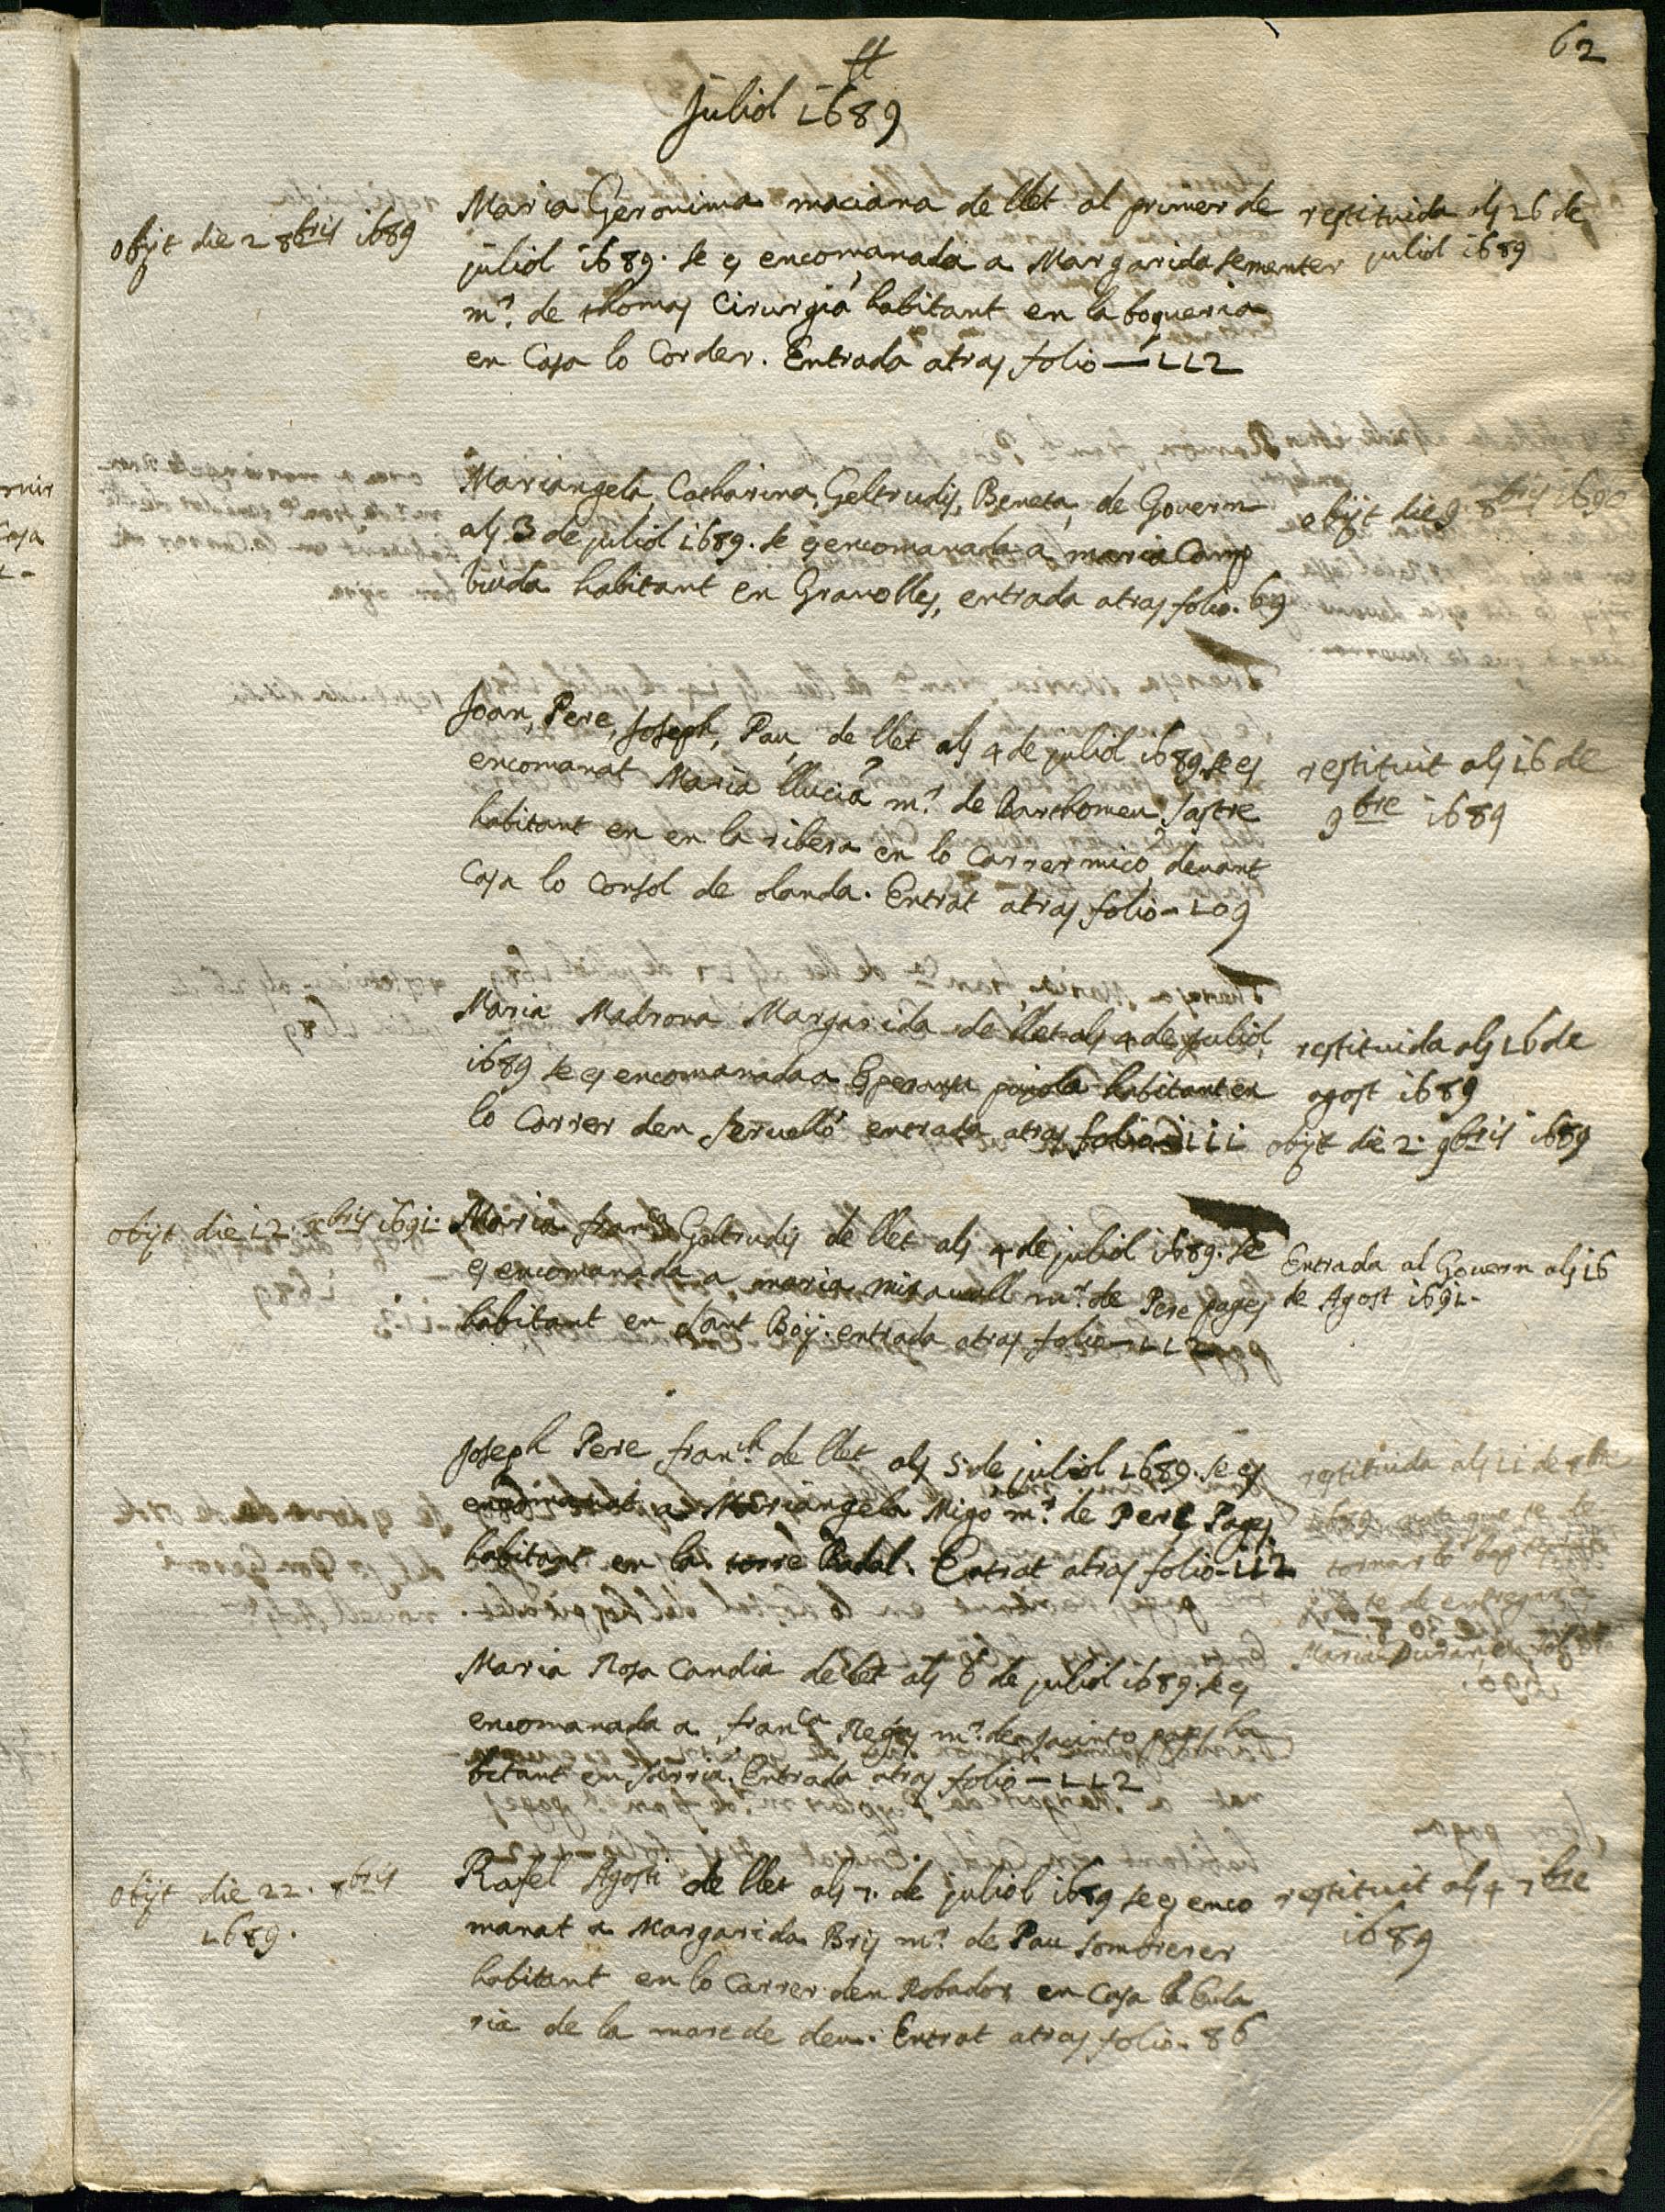 62
Juliol 1689
obijt die 2 8bris 1689
Maria Geronima maciana de llet al primer de
juliol 1689. se es encomanada a Margarida sementer
mr. de thomas Cirurgia habitant en la boqueria
en Casa lo Corder. Entrada atras folio — 112
restituida als 26 de
juliol 1689
Mariangela, Catharina, Geltrudis, Beneta, de Govern
als 3 de juliol 1689. se es encomanada a maria Camp
viuda habitant en Granolles, entrada atras folio. 69
obijt die 9 8bris 1690
Joan, Pere, Joseph, Pau, de llet als 4 de juliol 1689 se es
encomanat Maria llucia mr. de Barthomeu Sastre
habitant en en la ribera en lo Carrer mico devant
Casa lo Consol de olanda. Entrat atras folio - 109
restituit als 16 de
9bre 1689
Maria Madrona Margarida de llet als 4 de juliol
1689 se es encomanada a Esperansa pujola habitant en
lo Carrer den Servello entrada atras folio 111
restituida als 16 de
agost 1689
obijt die 2. 9bris 1689
obijt die 12. xbris 1691.
Maria franca Geltrudis de llet als 4 de juliol 1689. se
es encomanada a maria miravall mr. de Pere pages
habitant en Sant Boÿ. entrada atras folio — 112
Entrada al Govern als 16
de Agost 1691.
Joseph Pere franch. de llet als 5 de juliol 1689. se es
encomanat a Mariangela Migo mr. de Pere Pages
habitant en la torre Badal. Entrat atras folio - 112
restituida als 11 de
1689 nota que se te
tornar lo
se te de entregar a
Maria Duran
1690.
Maria Rosa Candia de llet als 6 de juliol 1689. se es
encomanada a franca Regas mr. de Jacinto pages ha
bitant en Sarria. Entrada atras folio — 112
obijt die 22. 8bris
1689.
Rafel Agosti de llet als 7. de juliol 1689 se es enco
manat a Margarida Bris mr. de Pau sombrerer
habitant en lo Carrer den Robador en Casa la Eula
ria de la mare de deu. Entrat atras folio. 86
restituit als 4 7bre
1689